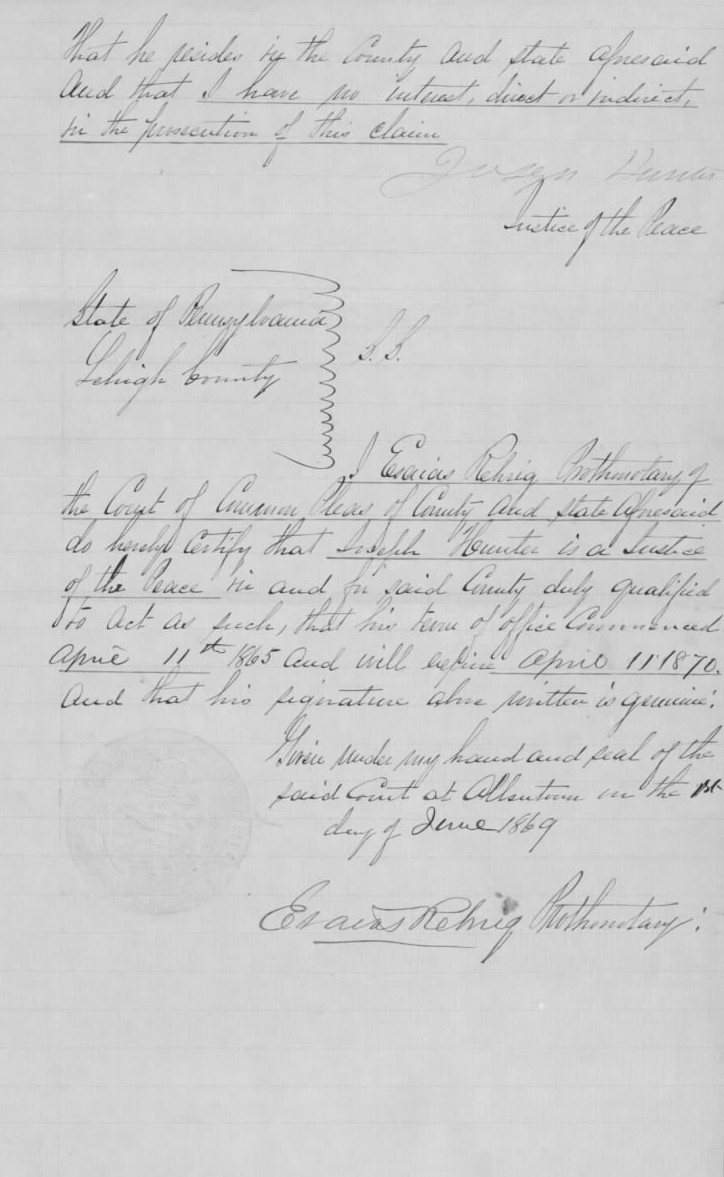 that he resides in the County and state aforesaid
and that I have no interest, direct or indirect,
in the prosecution of this claim
Joseph Hunter
Justice of the Peace
State of Pennsylvania
Lehigh County
S.S.
I Esaias Rehrig Prothonotary of
the Court of Common Pleas of County and state aforesaid
do hereby certify that Joseph Hunter is a Justice
of the Peace in and for said County duly qualified
to act as such, that his term of office Commenced
April 11th 1865 and will expire April 11 1870.
and that his signature above written is genuine:
Given under my hand and seal of the
said Court at Allentown on the 1st
day of June 1869
Esaias Rehrig Prothonotary: